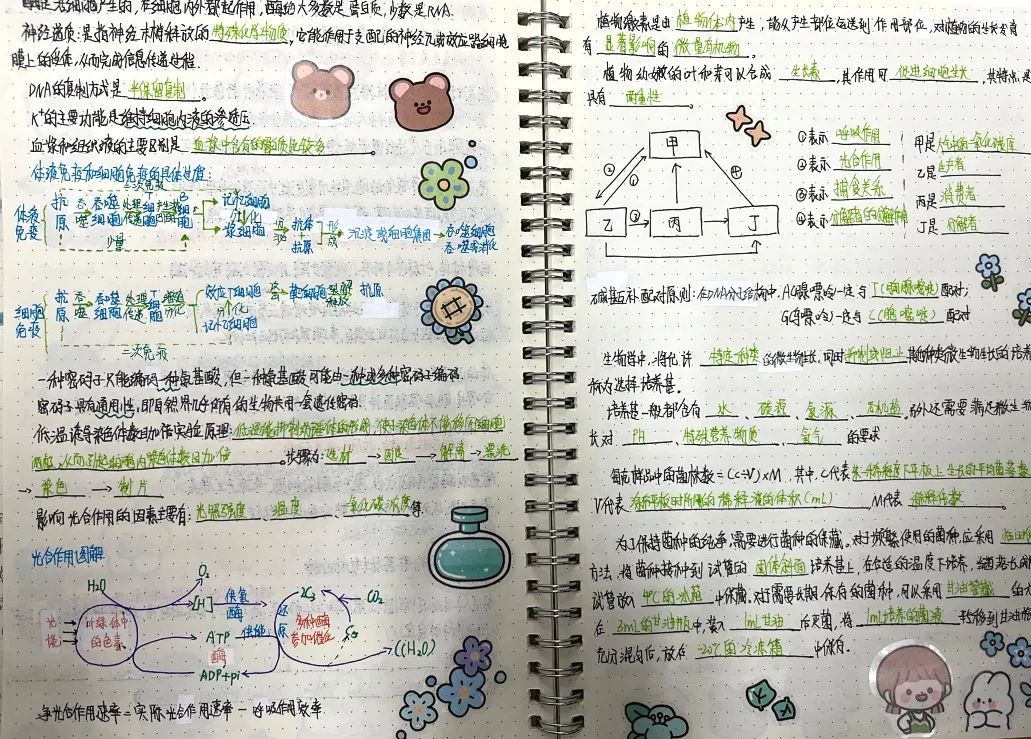 酶是活细胞产生的，在细胞内外都起作用，酶绝大多数是蛋白质，少数是RNA.
神经递质：是指神经末梢释放的特殊化学物质，它能作用于支配的神经元或效应器细胞
膜上的受体，从而完成信息传递过程.
DNA的复制方式是 半保留复制 。
K⁺的主要功能是维持细胞内液的渗透压
血浆和组织液的主要区别是 血浆中含有的蛋白质比较多 。
体液免疫和细胞免疫的具体过程：
二次免疫
体液免疫 抗原 吞噬 吞噬细胞 处理 传递 T细胞
记忆细胞
分化
浆细胞 抗体 抗原 形成 沉淀或细胞集团 吞噬细胞 吞噬或消化
少量
细胞免疫 抗原 吞噬 吞噬细胞 处理 传递 T细胞 增殖 分化 效应T细胞 靶细胞 裂解 释放 抗原
分化
记忆T细胞
二次免疫
一种密码子只能编码一种氨基酸，但一种氨基酸可能由一种或多种密码子编码
密码子具有通用性，即自然界几乎所有的生物共用一套遗传密码.
低温诱导染色体数目加倍实验原理：低温能抑制纺锤体的形成，使染色体不能移向细胞
两极，从而引起细胞内染色体数目加倍 。步骤为：选材 → 固定 → 解离 → 漂洗
→ 染色 → 制片
影响光合作用的因素主要有：光照强度、温度、二氧化碳浓度等
光合作用图解
H₂O O₂
[H] 供氢 酶 2C₃ CO₂
光能 叶绿体中的色素 还原 多种酶参加催化 C₅
ATP 供能
酶 (CH₂O)
ADP+pi
净光合作用速率 = 实际光合作用速率 - 呼吸作用效率
植物激素是由 植物体内 产生，能从产生部位运送到作用部位，对植物的生长发育
有 显著影响 的 微量有机物 。
植物幼嫩的叶和芽可以合成 生长素 ，其作用可 促进细胞生长 ，其特点是
具有 两重性 。
甲
② ① ④
乙 ③ 丙 丁
①表示 呼吸作用 甲是 二氧化碳浓度
②表示 光合作用 乙是 生产者
③表示 捕食关系 丙是 消费者
④表示 分解者的分解作用 丁是 分解者
碱基互补配对原则：在DNA分子结构中，A(腺嘌呤)一定与 T(胸腺嘧啶) 配对；
G(鸟嘌呤)一定与 C(胞嘧啶) 配对
生物学中，将允许 特定种类 的微生物生长，同时 抑制或阻止 其他种类微生物生长的培养
称为选择培养基.
培养基一般都含有 水 、 碳源 、 氮源 、 无机盐 ，另外还需要满足微生物
长对 PH 、 特殊营养物质 、 氧气 的要求
每克样品中的菌株数=(C÷V)×M，其中，C代表某一稀释度下平板上生长的平均菌落数
V代表 涂布平板时所用的稀释液的体积(mL) ，M代表 稀释倍数 。
为了保持菌种的纯净，需要进行菌种的保藏.对于频繁使用的菌种，应采用 临时保
方法，将菌种接种到试管的 固体斜面 培养基上，在合适的温度下培养，当菌落长成
试管放入 4℃的冰箱 中保藏.对于需要长期保存的菌种，可以采用 甘油管藏 的方
在 3mL的甘油瓶 中，装入 1mL甘油 后灭菌，将 1mL培养的菌液 转移到甘油瓶
充分混匀后，放在 -20℃的冷冻箱 中保存.